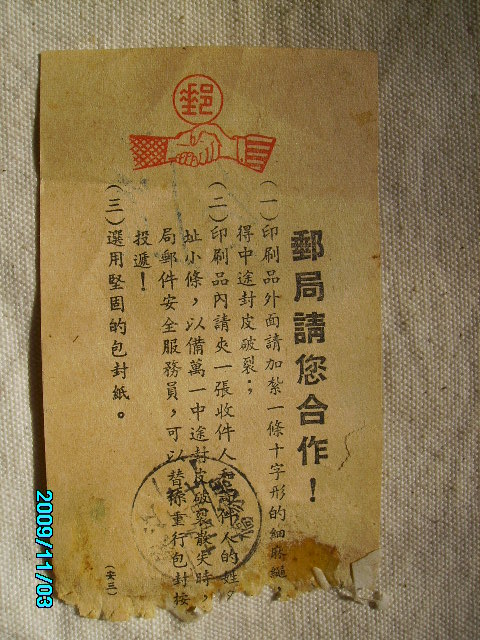 郵
郵局請您合作！
（一）印刷品外面請加紮一條十字形的細麻繩，
得中途封皮破裂；
（二）印刷品內請夾一張收件人和寄件人的姓名
址小條，以備萬一中途封皮破裂散失時，
局郵件安全服務員，可以替你重行包封按
投遞！
（三）選用堅固的包封紙。
（安三）
2009/11/03